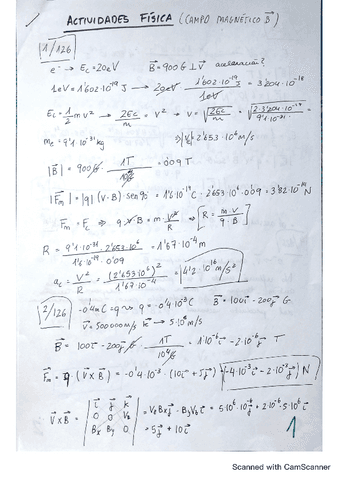 ACTIVIDADES FÍSICA (CAMPO MAGNÉTICO B⃗)
1/126
e⁻ → Ec = 20eV B⃗ = 900 G ⊥ v⃗ aceleración?
1eV = 1'602·10⁻¹⁹ J → 20eV · 1'602·10⁻¹⁹ J / 1eV = 3'204·10⁻¹⁸
Ec = 1/2 m v² → 2Ec/m = v² → v = √(2Ec/m) = √(2·3'204·10⁻¹⁸ / 9'1·10⁻³¹) =
me = 9'1·10⁻³¹ kg ⇒ |v⃗| 2'653·10⁶ m/s
|B⃗| = 900 G · 1T / 10⁴G = 0'09 T
|F⃗m| = |q| (v·B)·sen90 = 1'6·10⁻¹⁹ C · 2'653·10⁶ · 0'09 = 3'82·10⁻¹⁴ N
Fm = Fc ⇒ q·v·B = m·v²/R ⇒ [R = m·v / q·B]
R = 9'1·10⁻³¹ · 2'653·10⁶ / 1'6·10⁻¹⁹ · 0'09 = 1'67·10⁻⁴ m
ac = v²/R = (2'653·10⁶)² / 1'67·10⁻⁴ = 4'2·10¹⁶ m/s²
2/126
-0'4mC = q → q = 0'4·10⁻³ C B⃗ = 100i⃗ - 200j⃗ G
v⃗ = 500000 m/s k⃗ → 5·10⁵ m/s
B⃗ = 100i⃗ - 200j⃗ G · 1T / 10⁴G = 1·10⁻²i⃗ - 2·10⁻²j⃗ T
F⃗m = q · (v⃗ × B⃗) = -0'4·10⁻³ · (10i⃗ + 5j⃗) = -4·10⁻³i⃗ - 2·10⁻³j⃗ N
v⃗ × B⃗ = | i⃗ j⃗ k⃗ | = VzBxj⃗ - ByVzi⃗ = 5·10⁵·10⁻²j⃗ + 2·10⁻²·5·10⁵i⃗
| 0 0 Vz |
| Bx By 0 | = 5j⃗ + 10i⃗
1
Scanned with CamScanner